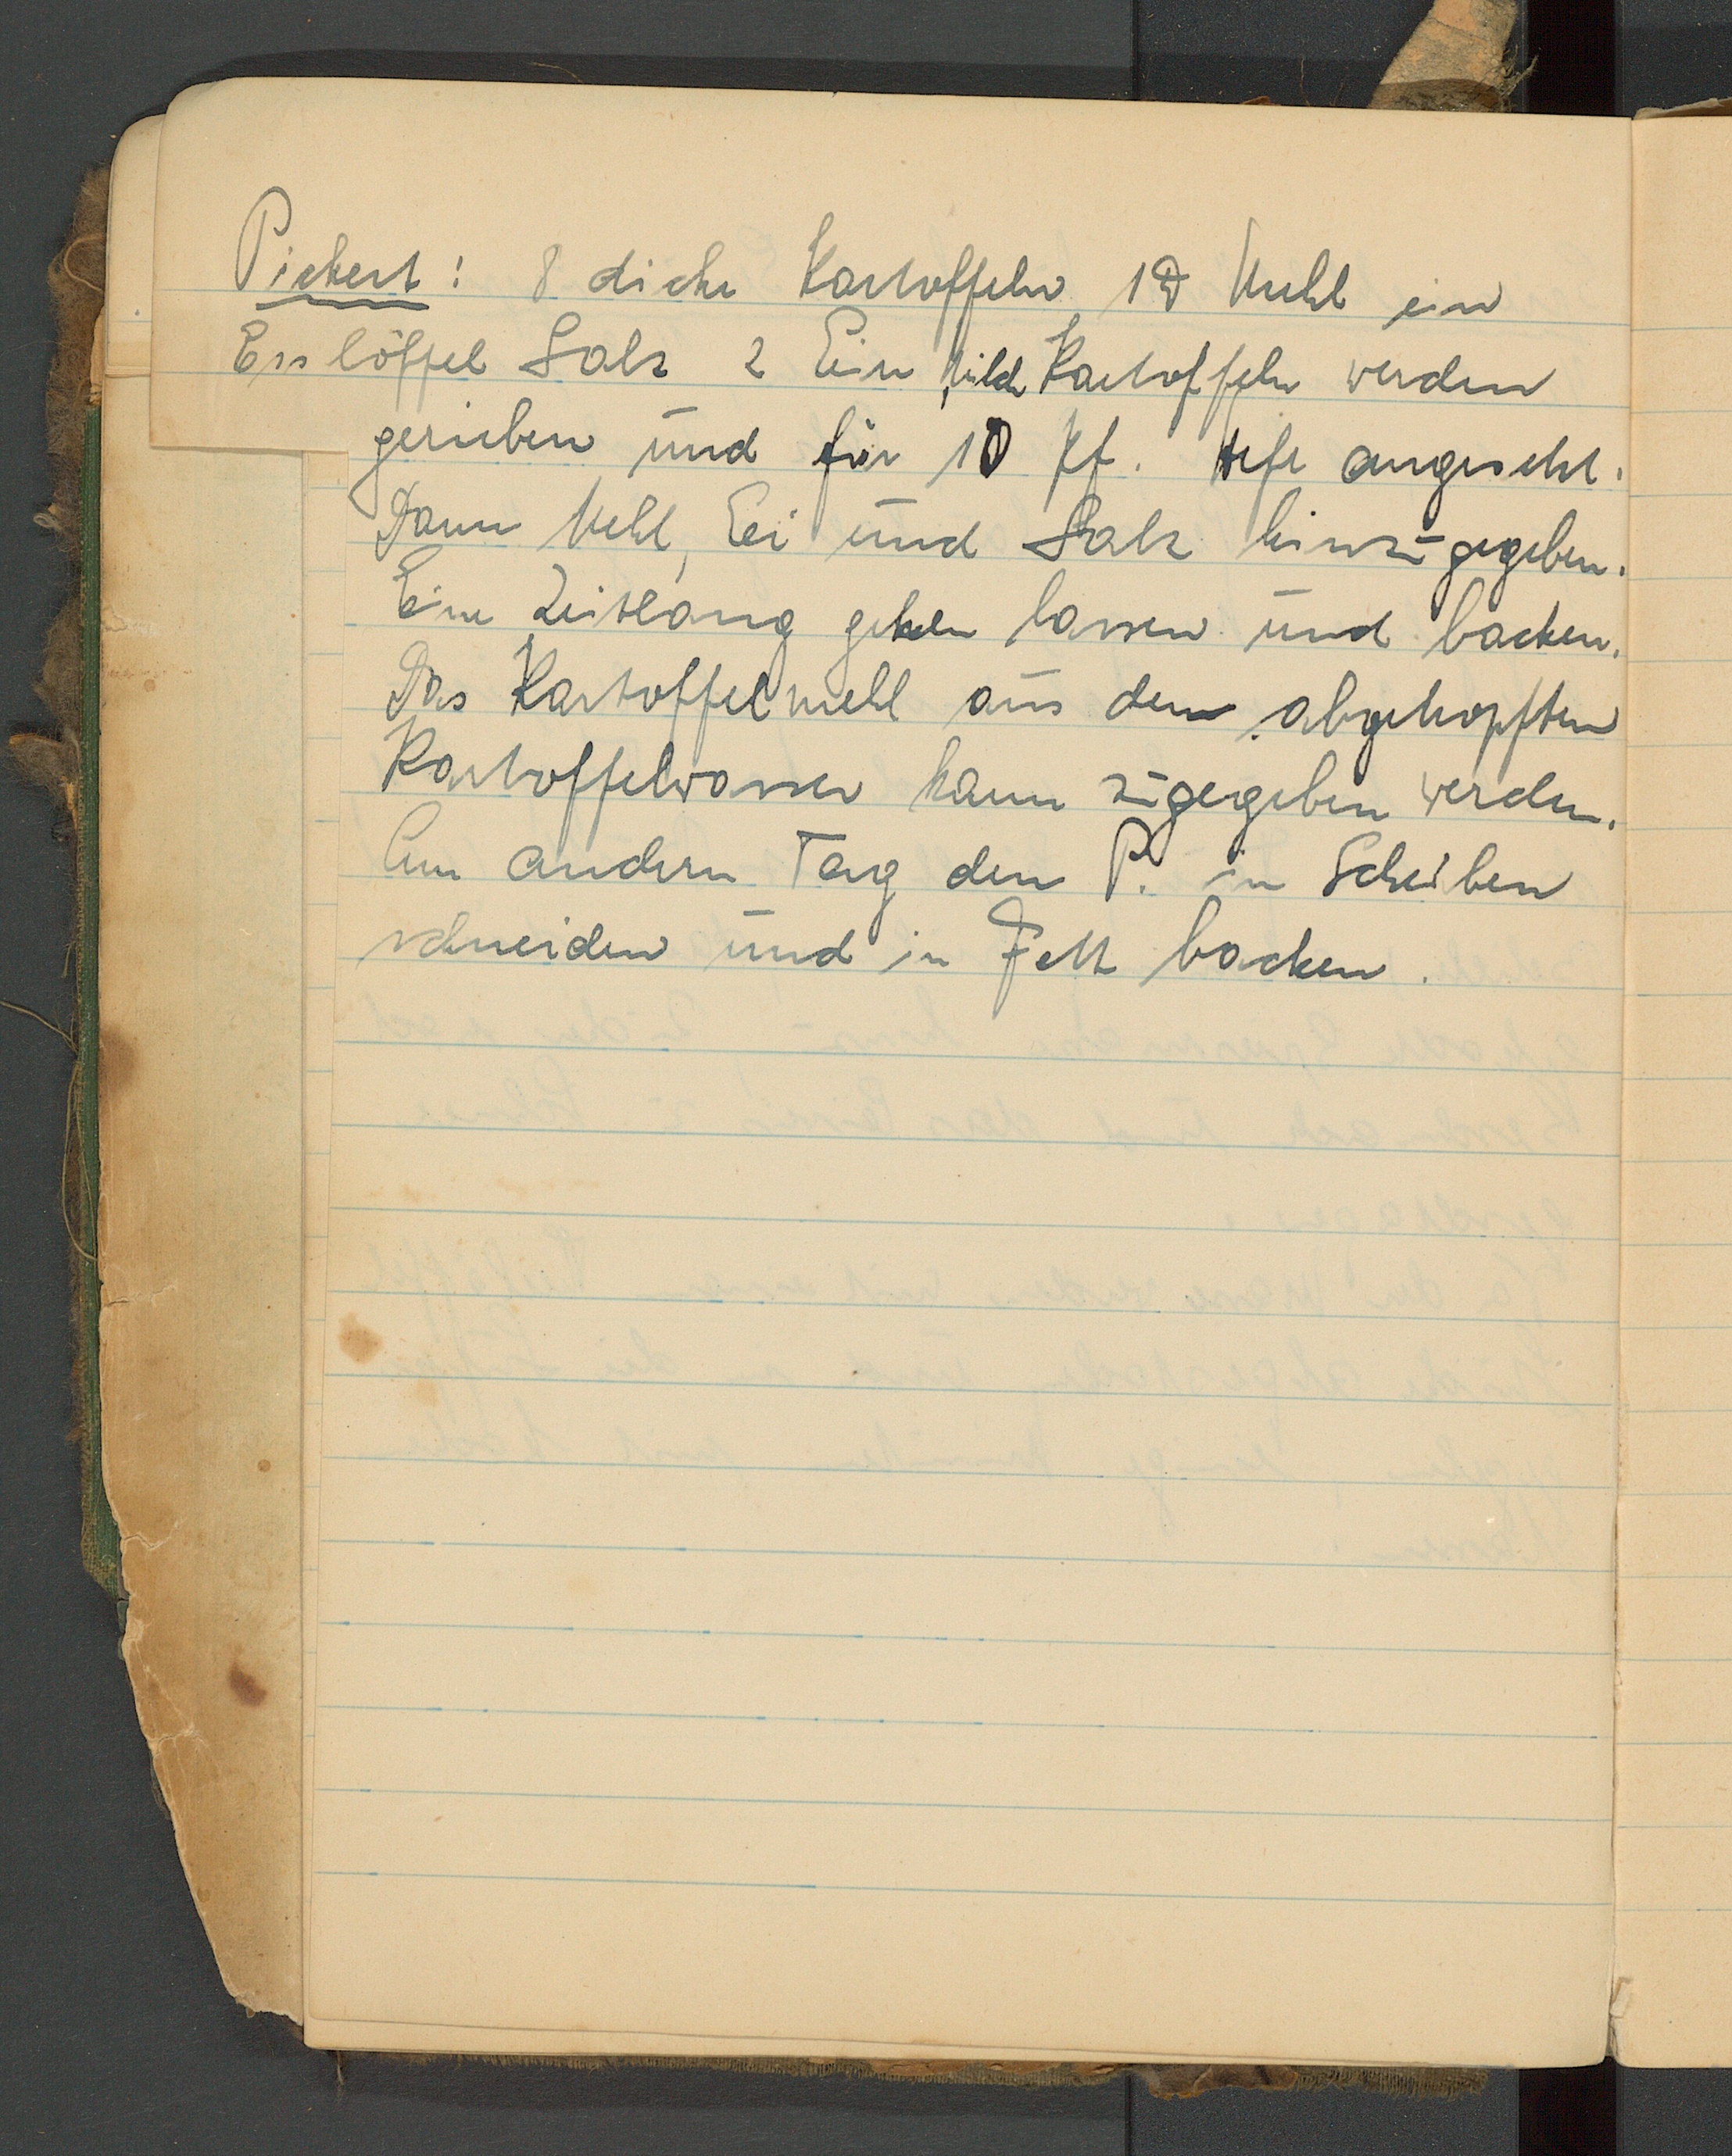 Pickert: 8 dicke Kartoffeln 1 ℔ Mehl ein
Esslöffel Salz 2 Eier, Milch Kartoffeln werden
gerieben und für 10 Pf. Hefe angesetzt.
Dann Mehl, Ei und Salz hinzugegeben.
Eine Zeitlang gehen lassen und backen.
Das Kartoffelmehl aus dem abgetropften
Kartoffelwasser kann zugegeben werden.
Am andern Tag den P. in Scheiben
schneiden und in Fett backen.